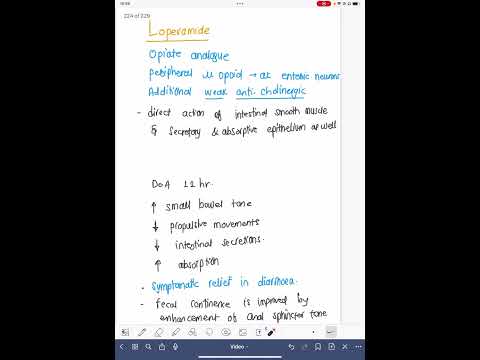 224 of 229
Loperamide
Opiate analogue
Peripheral μ opoid → at enteric neurons
Additional weak anti-cholinergic
- direct action of intestinal smooth muscle
& secretory & absorptive epithelium as well
DoA 12 hr.
↑ small bowel tone
↓ propulsive movements
↓ intestinal secretions.
↑ absorption
- Symptomatic relief in diarrhoea.
- fecal continence is improved by
enhancement of anal sphincter tone
Video